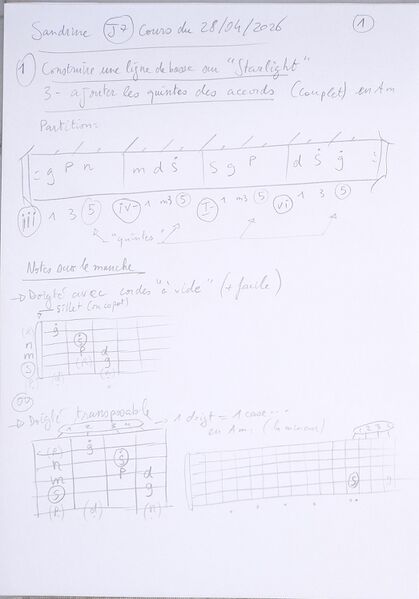 Sandrine J7 Cours du 28/04/2026 1
1 Construire une ligne de basse sur "Starlight"
3 - ajouter les quintes des accords (Couplet) en Am
Partition:
g P n m d ṡ S g P d ṡ ġ
iii 1 3 5 iv- 1 m3 5 I 1 m3 5 vi 1 3 5
"quintes"
Notes sur le manche
→ Doigté avec cordes "à vide" (+ facile)
Sillet (ou capot)
ġ
n ṡ
m P d
S (n) g
ou
→ Doigté transposable → 1 doigt = 1 case...
1 2 3 4 en Am: (la mineur) 1 2 3 4
(R) ġ
n ṡ
m P d
S g S
(P) (d) (n)